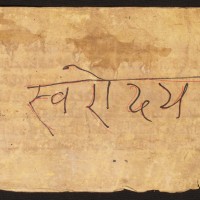 स्वरोदय